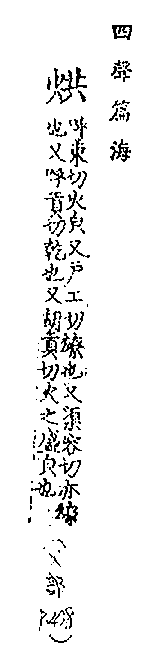 四聲篇海
烘
呼東切火皃又戶工切燎也又渠容切亦燎
也又呼貢切乾也又胡貢切火之盛皃也
（火部